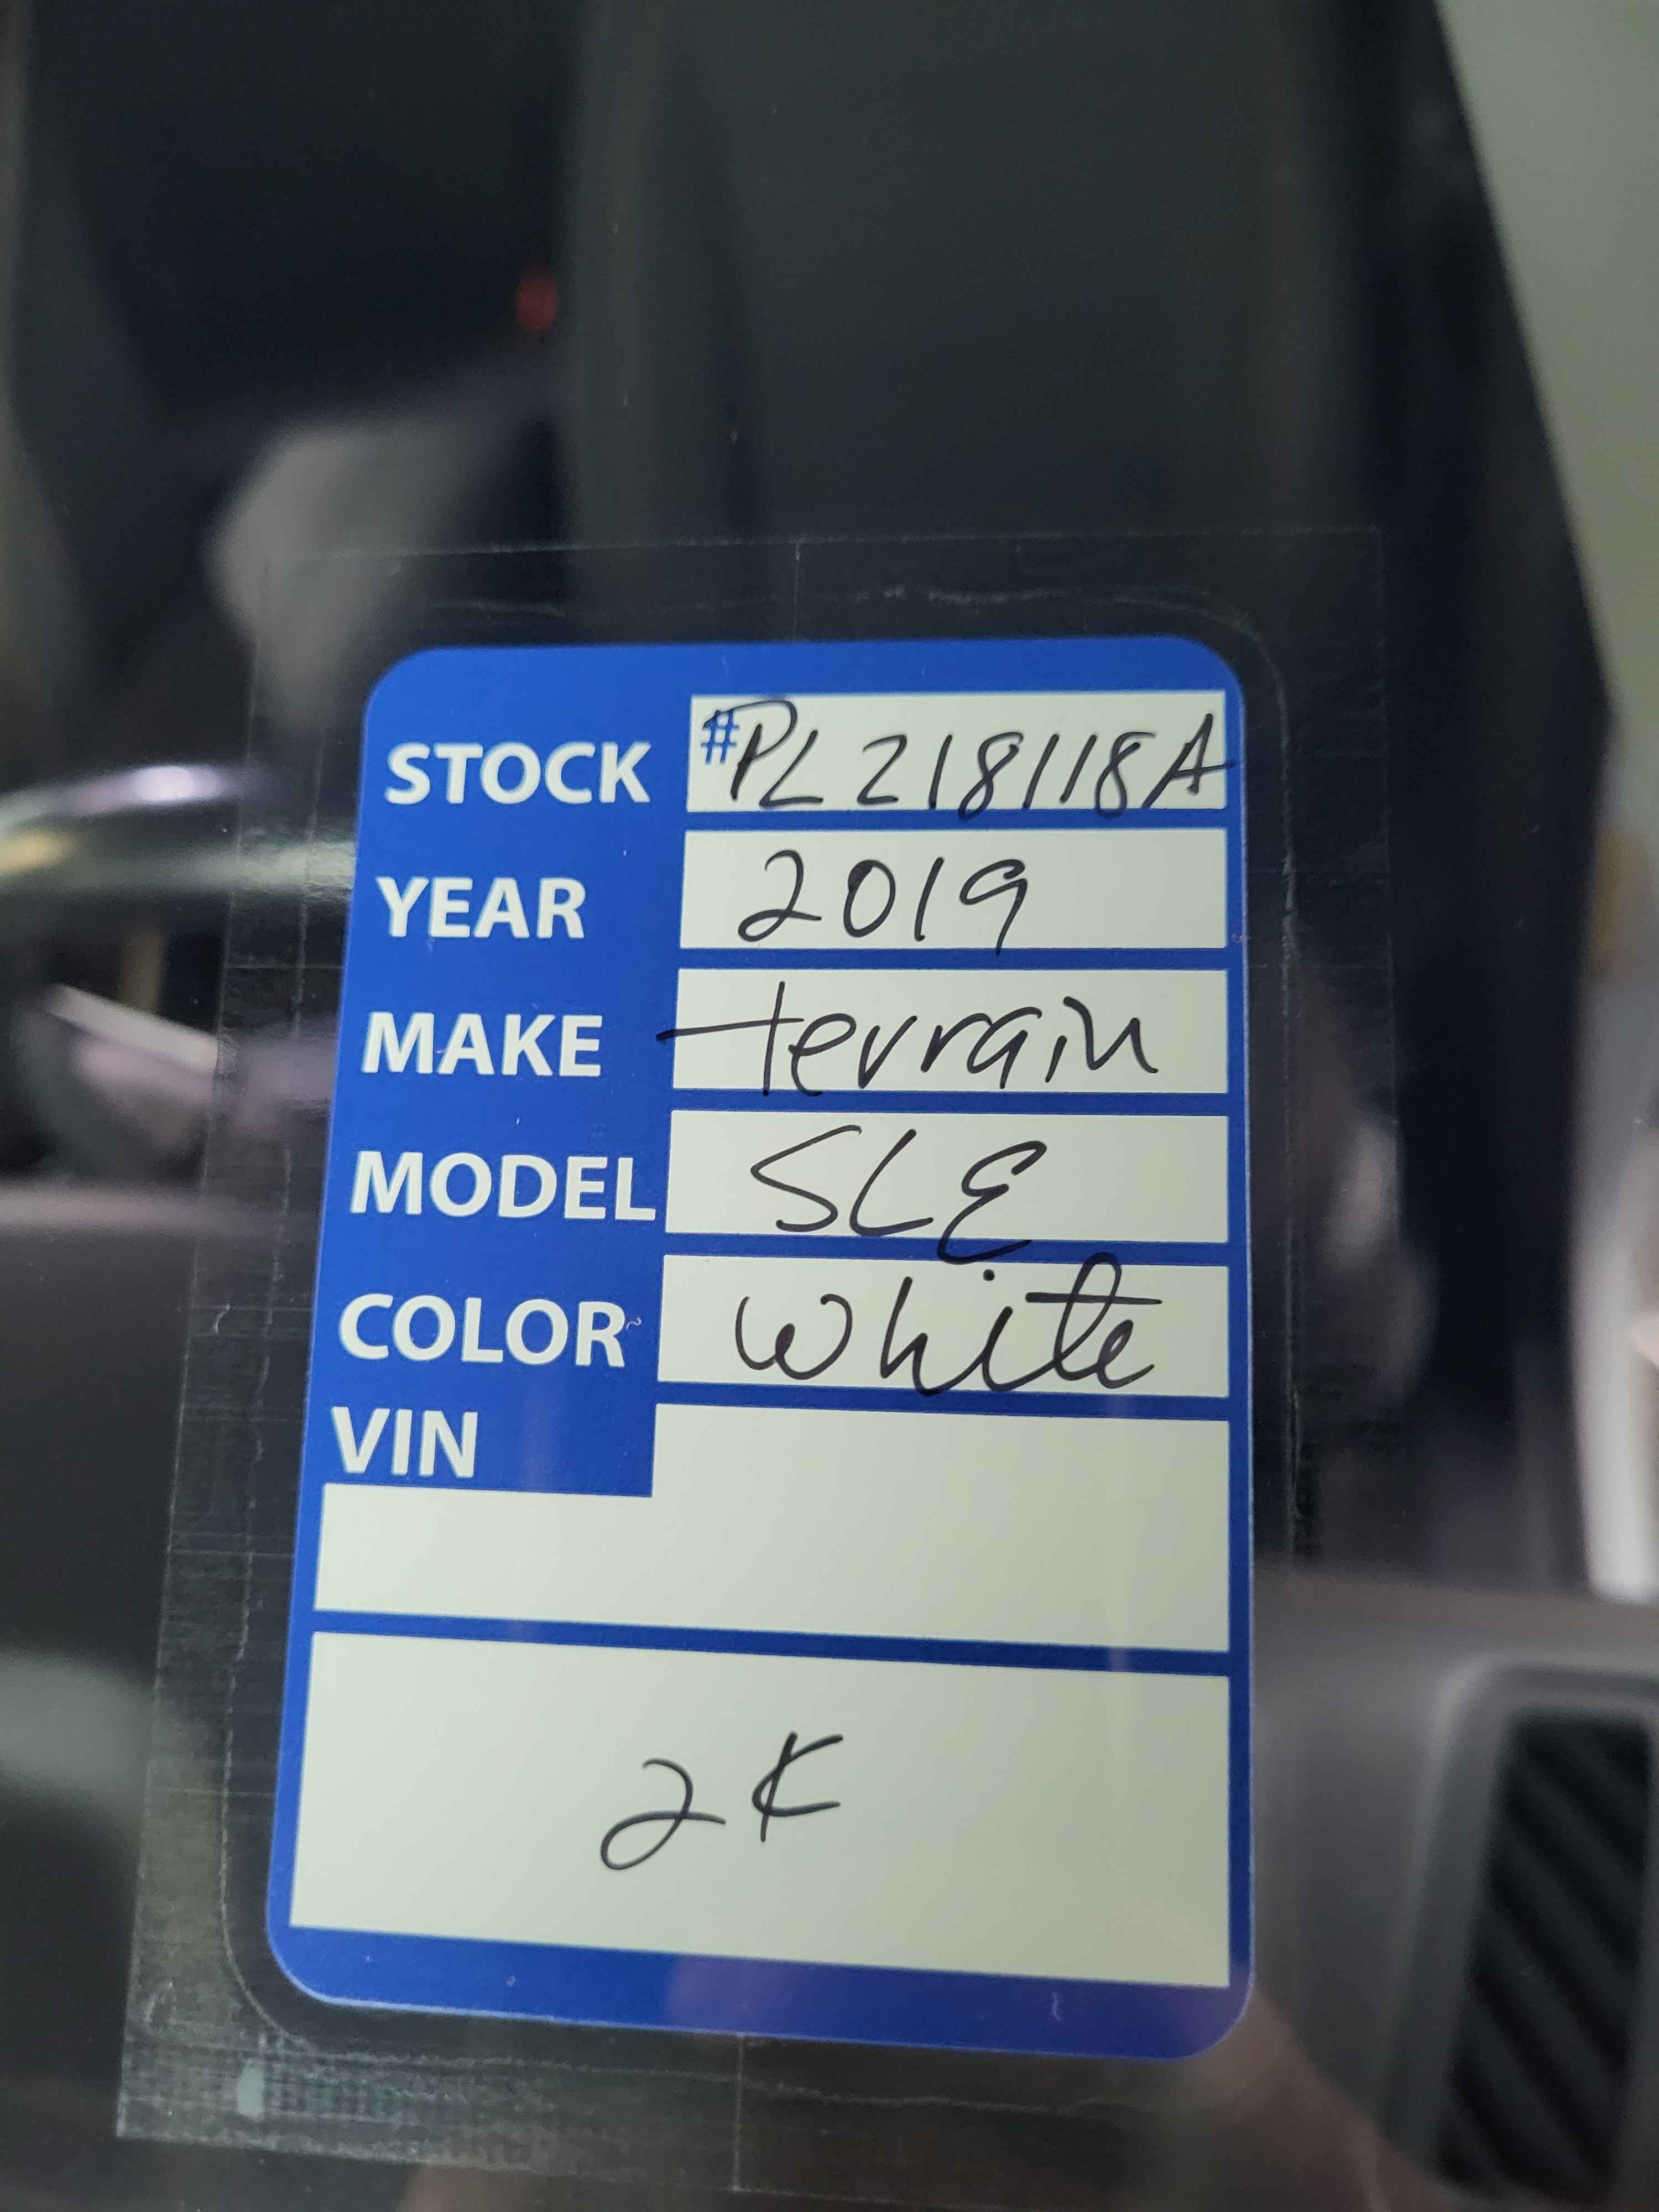 STOCK #PL218118A
YEAR 2019
MAKE terrain
MODEL SLE
COLOR white
VIN
2K